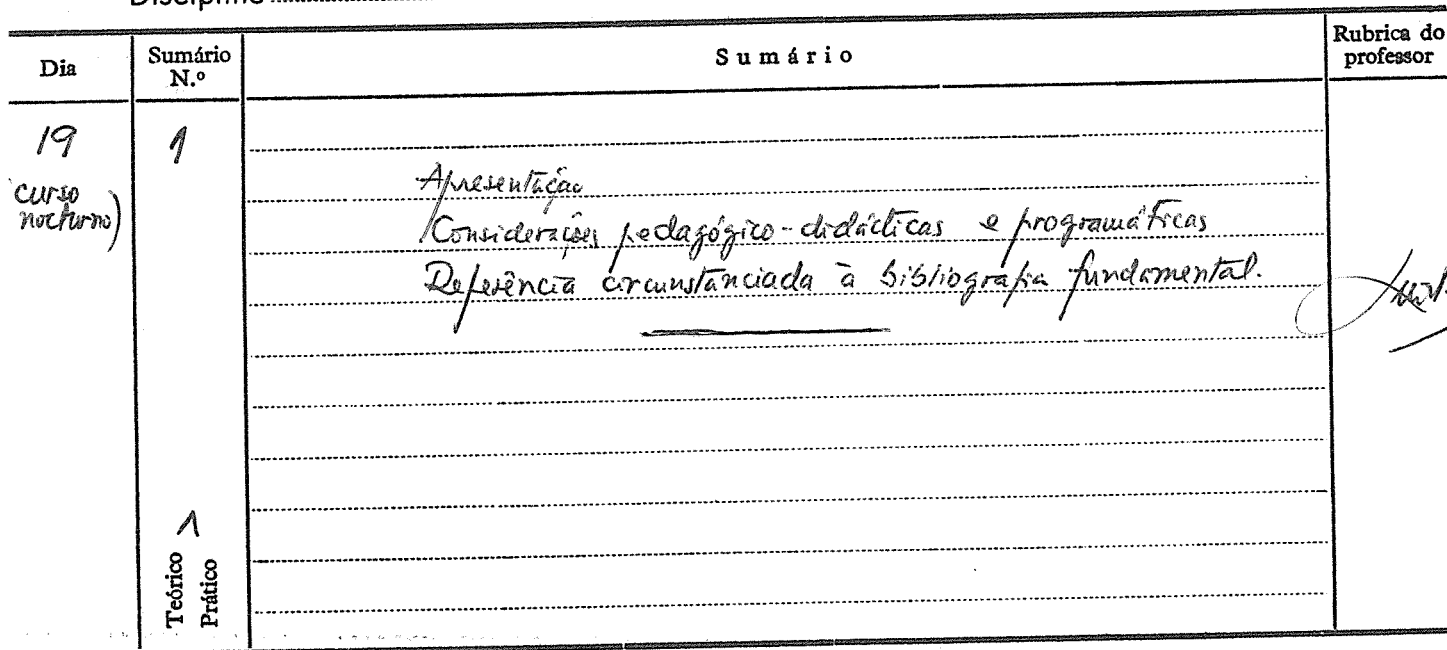 Disciplina
Dia
Sumário
N.º
Sumário
Rubrica do
professor
19
(curso
nocturno)
1
Apresentação
Considerações pedagógico-didácticas e programáticas
Referência circunstanciada à bibliografia fundamental.
Teórico
Prático